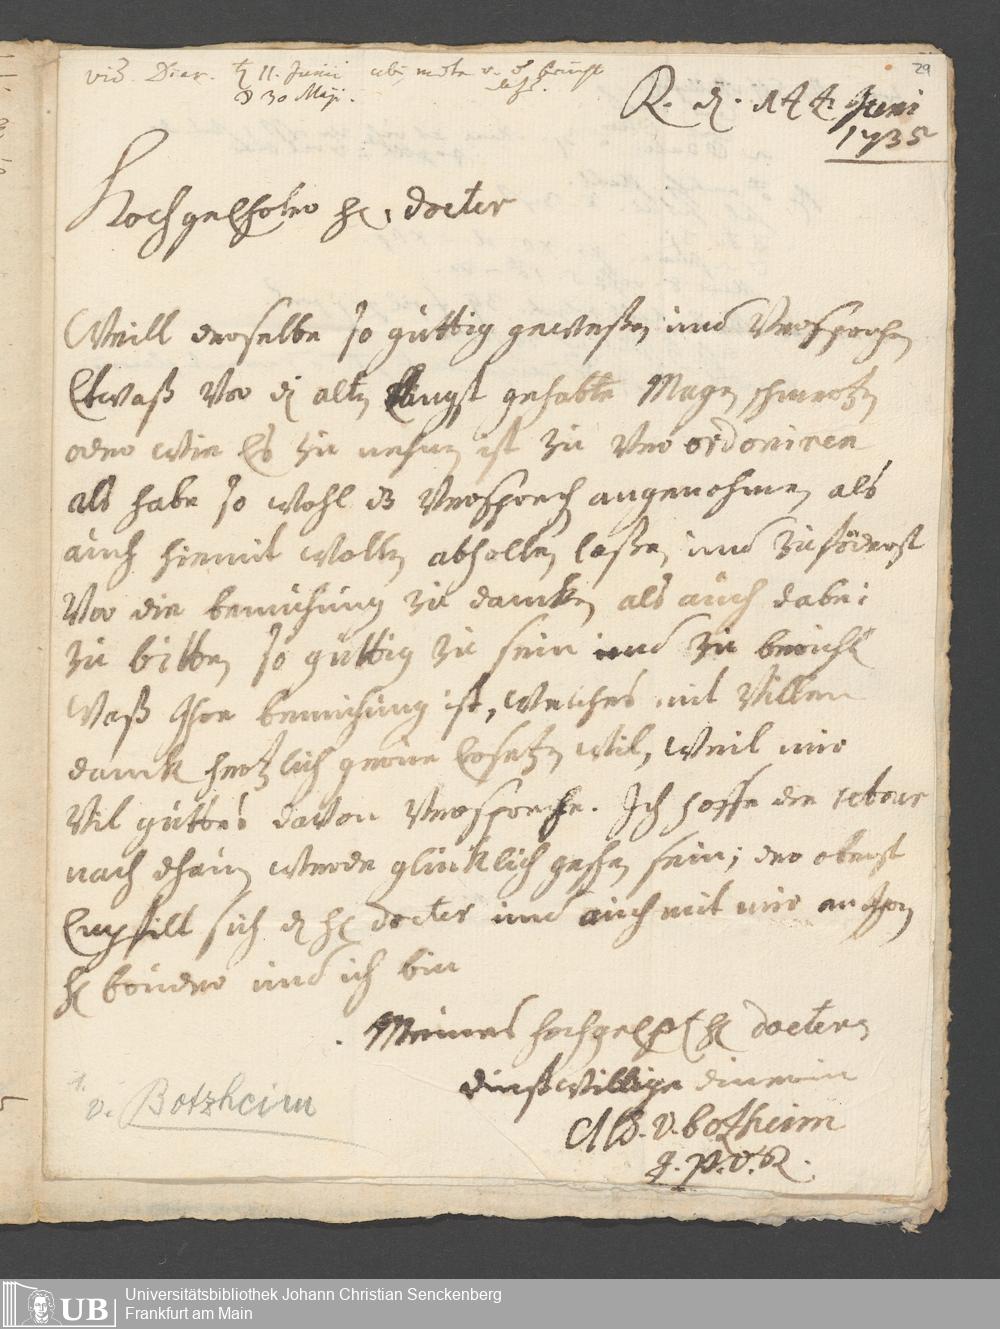 29
vid. Diar. ♄ 11. Junii ubi nota
☽ 30 Maji.
R. d. 144 Juni
1735
Hochgelehrter H. docter
Weill derselbe so güttig geweßen und Versprochen
Etwaß Vor di alten längst gehabte Magen schmertzen
oder wie Es zu nehmen ist zu Ver ordoniren
als habe so wohl dß Versprech angenohmen als
auch hiermit wollen abhollen laßen und zu föderst
Vor die bemühung zu dancken als auch dabei
zu bitten so güttig zu sein und zu bericht
Waß Ihre bemühung ist, welches mit Villen
danck hertzlich gerne Ersetzen wil, weil mir
Vil guttes davon Verspreche. Ich hoffe die retour
nach dhaun werde glücklich geschehen sein; der oberst
Empfilt sich d H docter und auch mit mir an Ihren
H bruder und ich bin
Meines hochgelehrt H docters
dinstwillige dinerin
v. botzheim
g. p. v. R.
1.
v. Botzheim
UB
Universitätsbibliothek Johann Christian Senckenberg
Frankfurt am Main